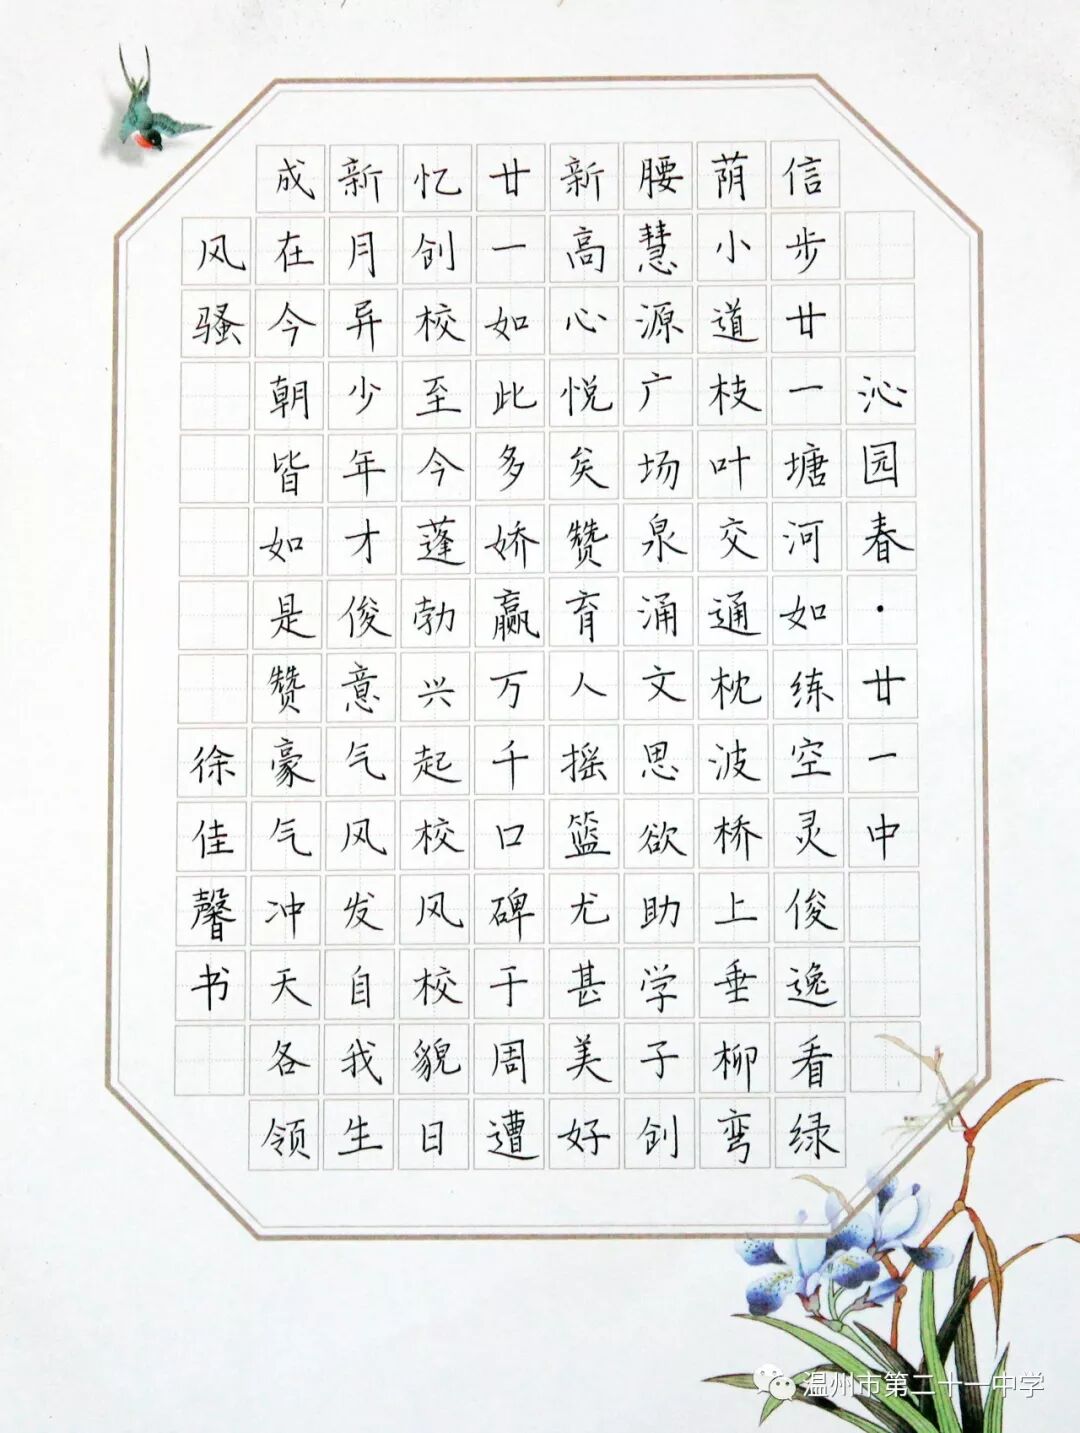 沁园春·廿一中
信步廿一塘河如练空灵俊逸看绿
荫小道枝叶交通枕波桥上垂柳弯
腰慧源广场泉涌文思欲助学子创
新高心悦矣赞育人摇篮尤甚美好
廿一如此多娇赢万千口碑于周遭
忆创校至今蓬勃兴起校风校貌日
新月异少年才俊意气风发自我生
成在今朝皆如是赞豪气冲天各领
风骚
徐佳馨书
温州市第二十一中学